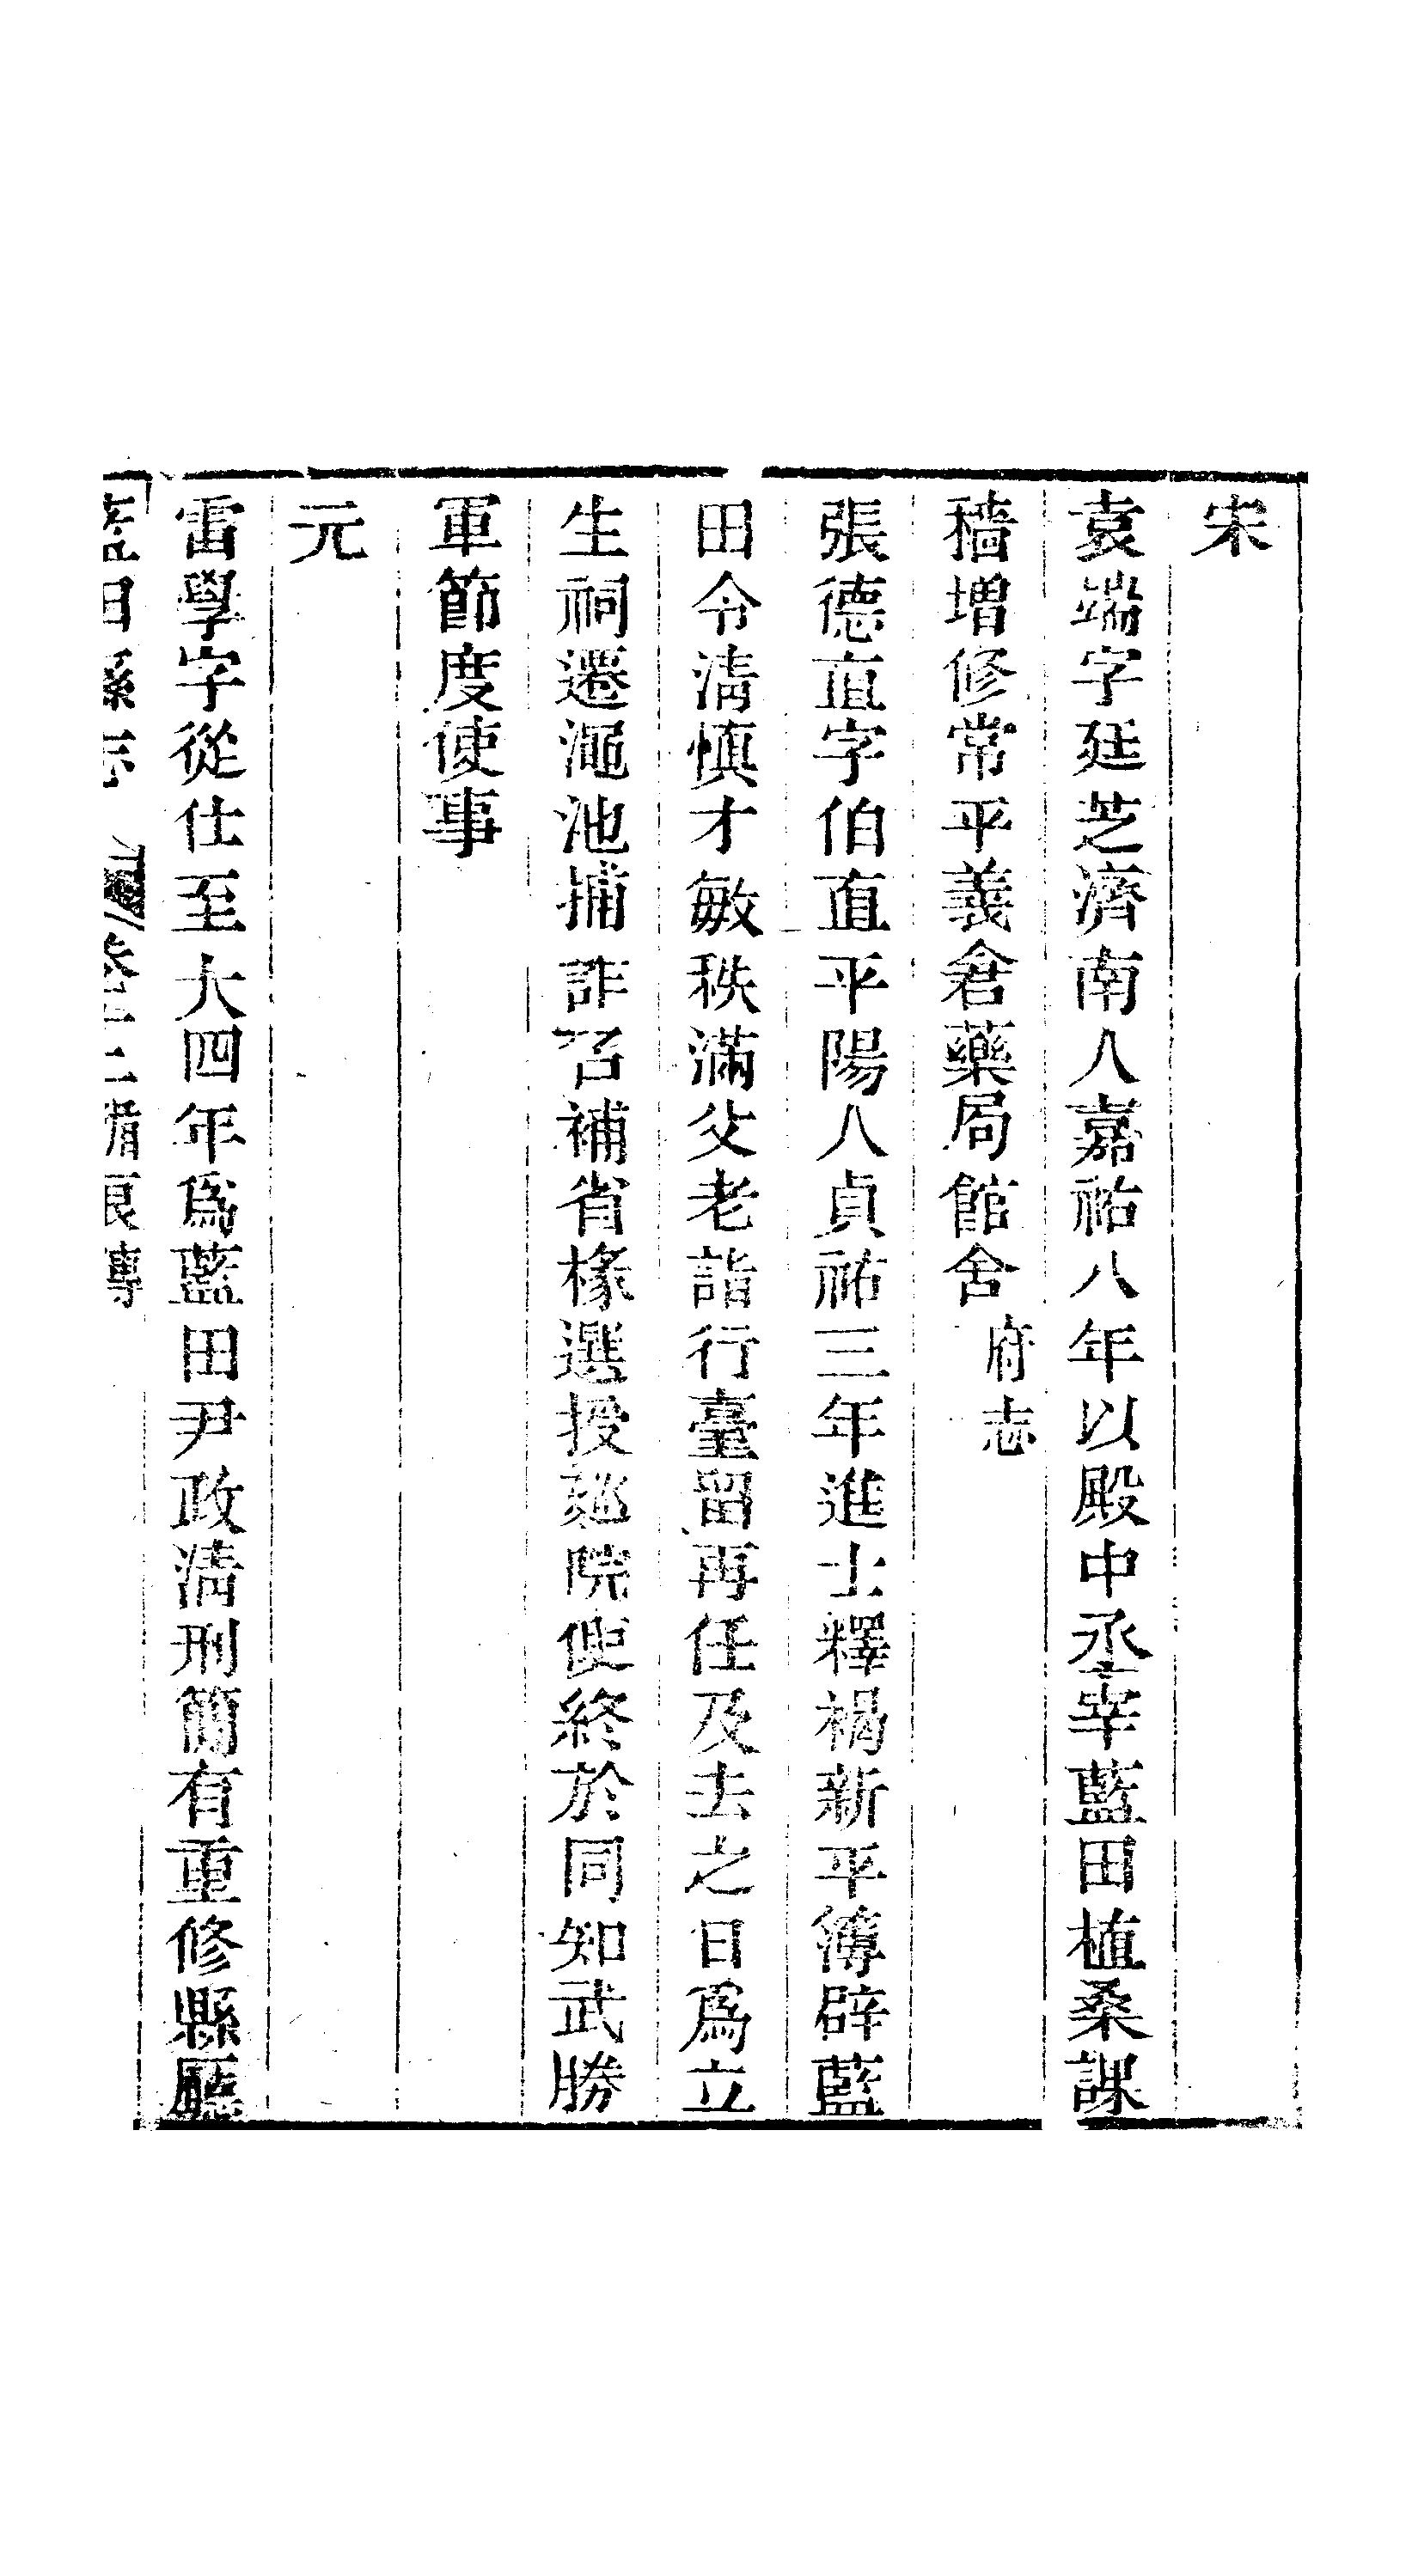 宋
袁端字廷芝濟南人嘉祐八年以殿中丞宰藍田植桑課
穡增修常平義倉藥局館舍府志
張德直字伯直平陽人貞祐三年進士釋褐新平簿辟藍
田令清慎才敏秩滿父老詣行臺留再任及去之日為立
生祠遷澠池捕詐召補省椽選授巡院使終於同知武勝
軍節度使事
元
雷學字從仕至大四年為藍田尹政清刑簡有重修縣廳
藍田縣志 循良傳